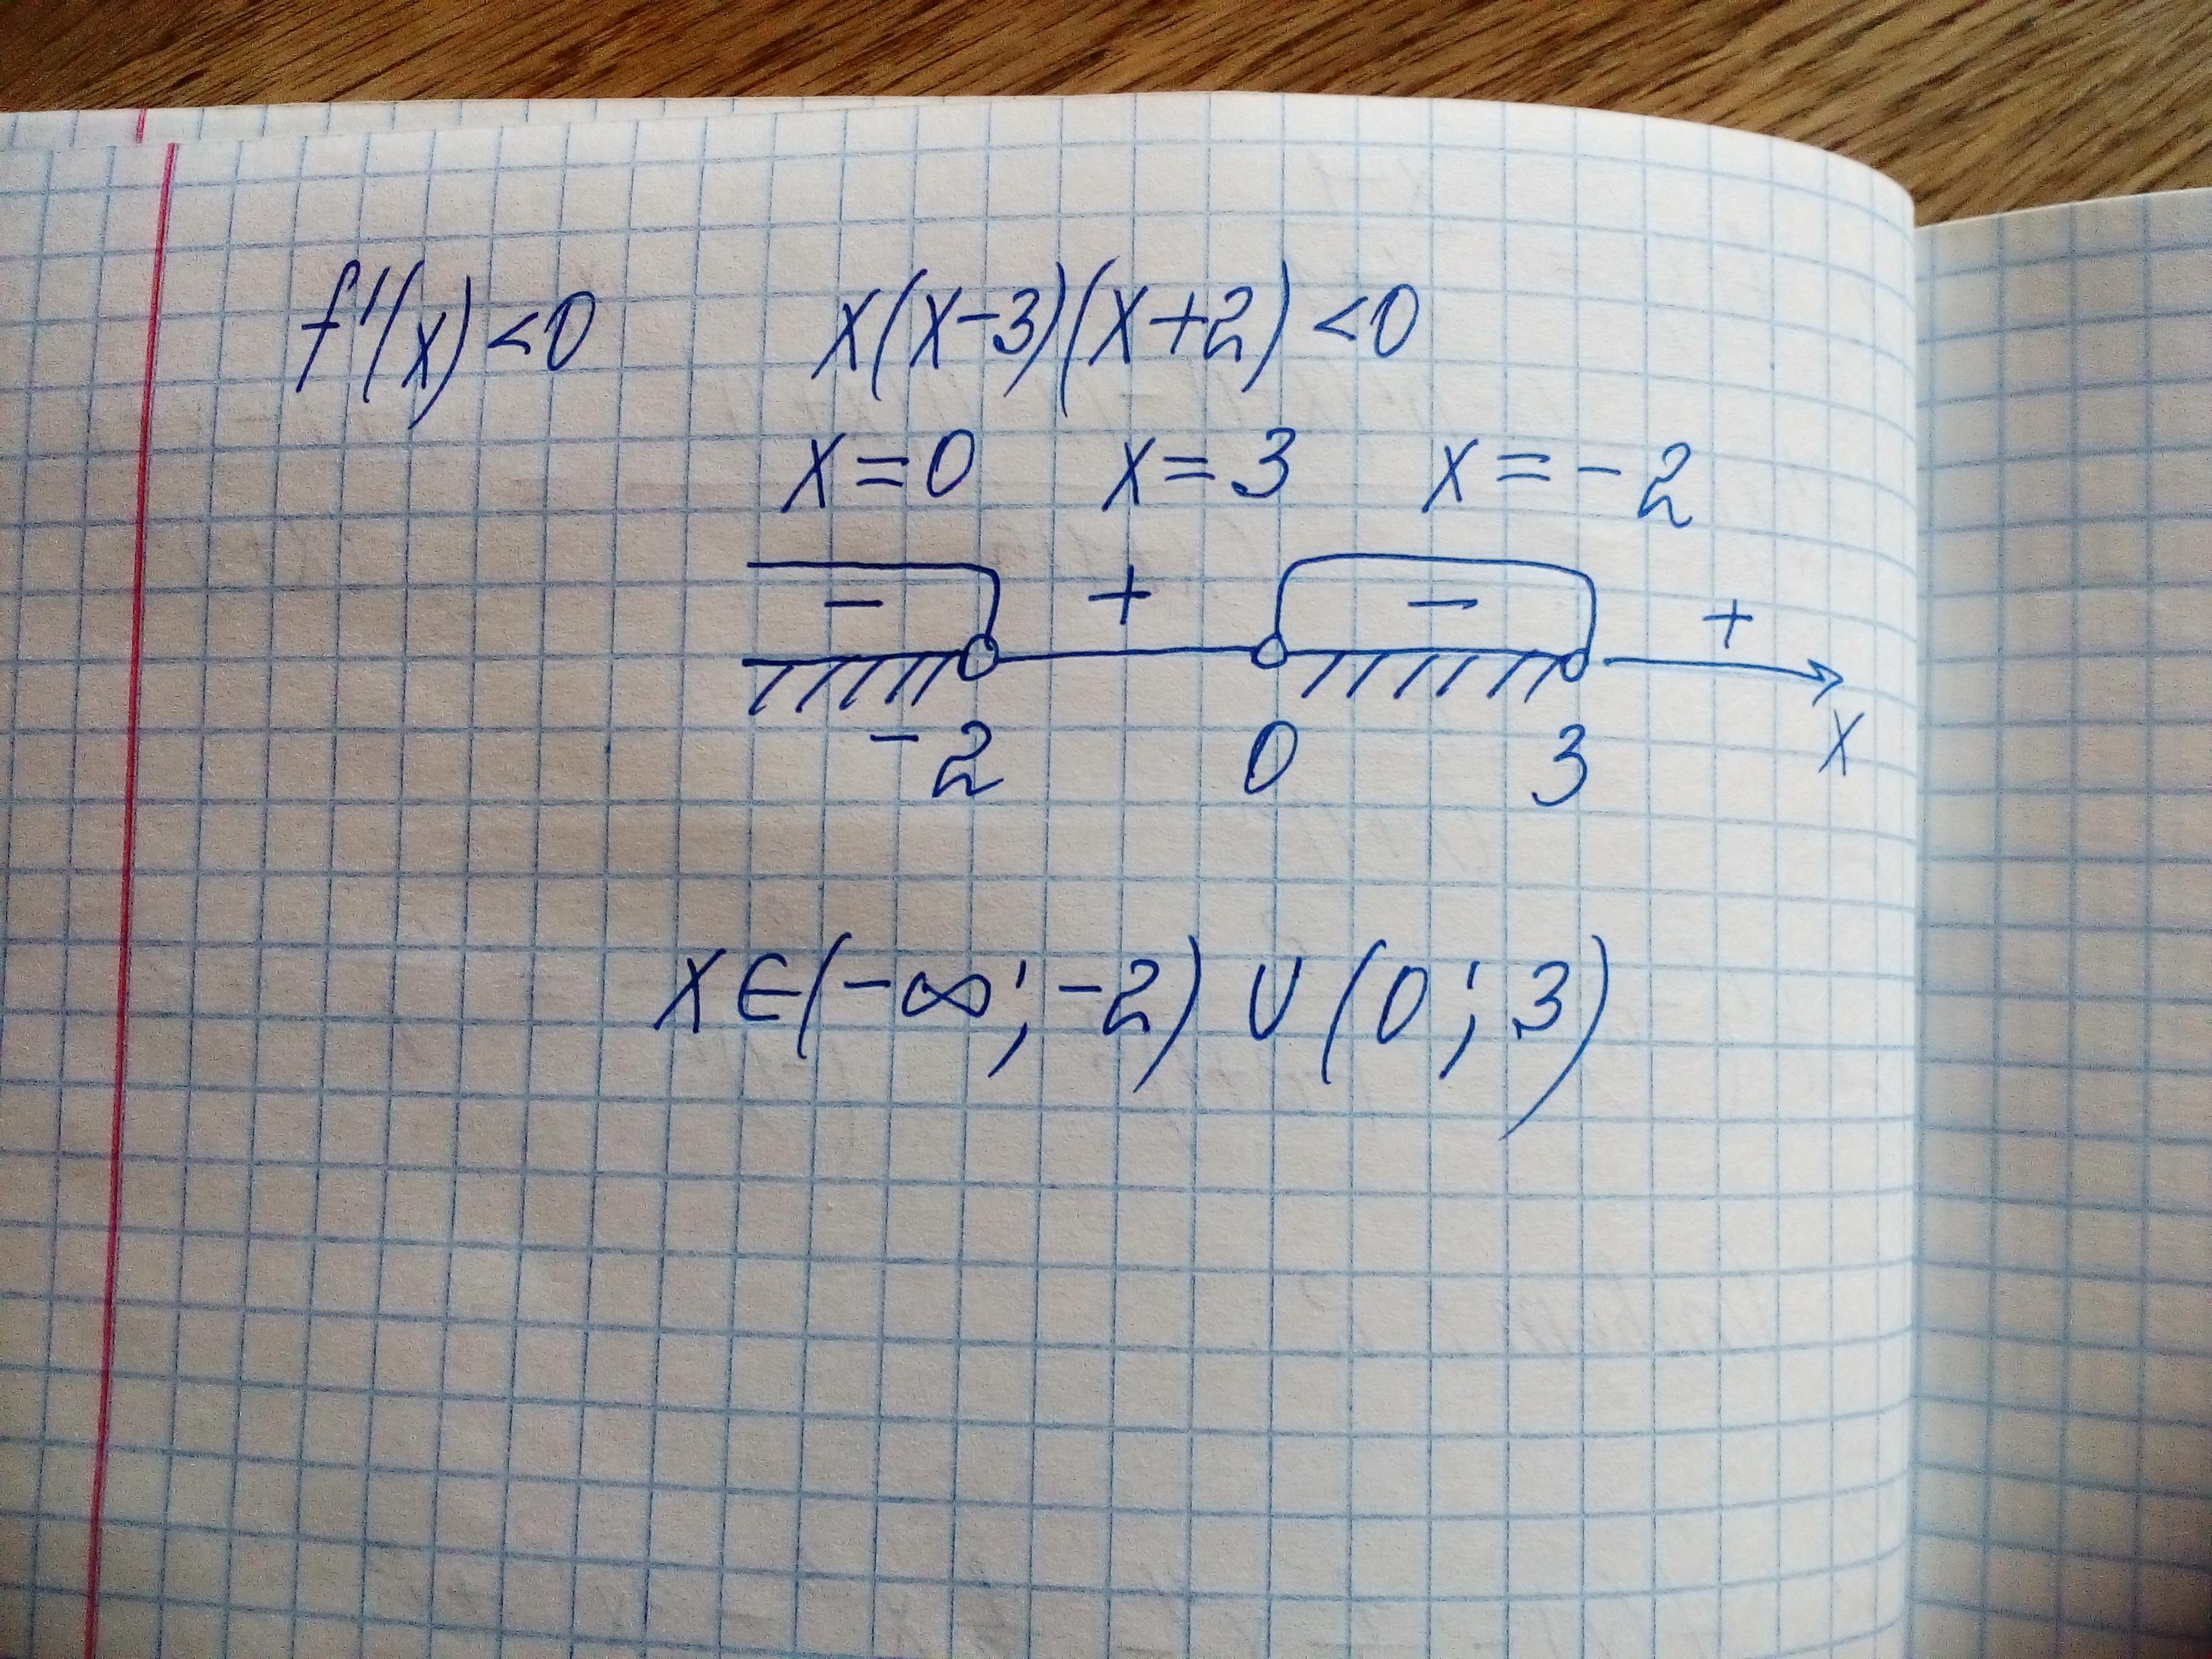 f'(x)<0 x(x-3)(x+2)<0
x=0 x=3 x=-2
- + - +
-2 0 3 x
x∈(-∞;-2)∪(0;3)